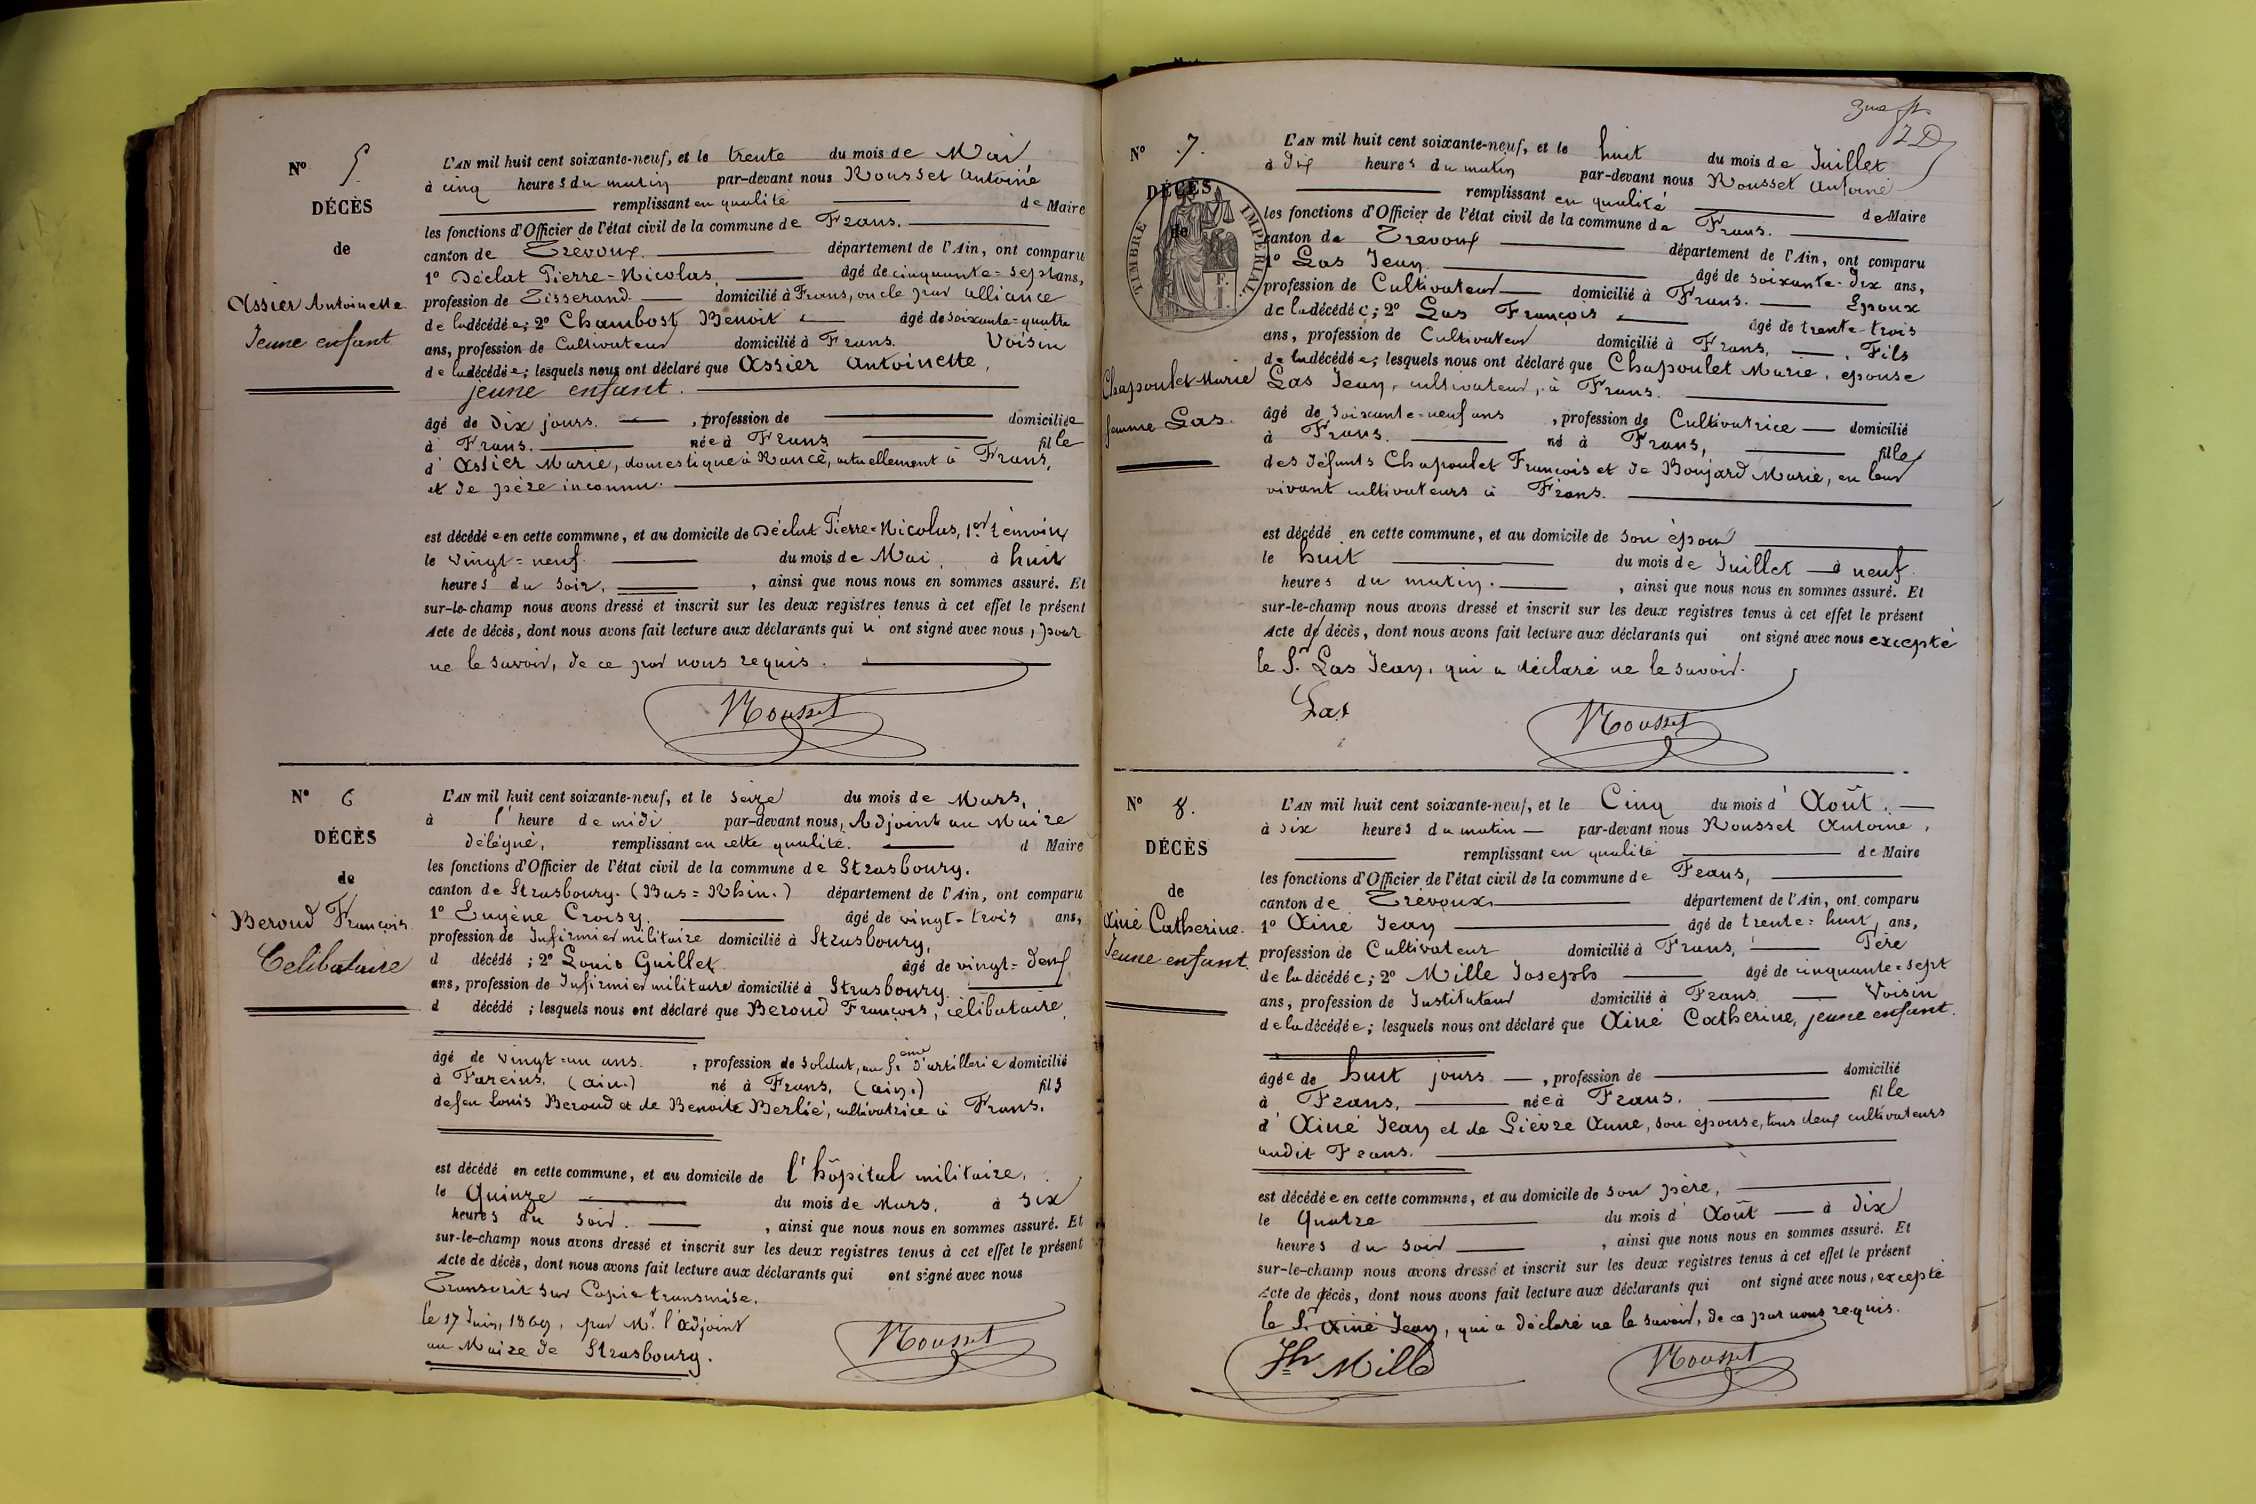 N° 5.
DÉCÈS
de
Assier Antoinette
Jeune enfant
L'AN mil huit cent soixante-neuf, et le trente du mois de Mai,
à cinq heures du matin par-devant nous Rousset Antoine
remplissant en qualité de Maire
les fonctions d'Officier de l'état civil de la commune de Frans.
canton de Trévoux. département de l'Ain, ont comparu
1° Déclat Pierre-Nicolas, âgé de cinquante-sept ans,
profession de Tisserand. domicilié à Frans, oncle par alliance
de la décédée; 2° Chambost Benoit âgé de soixante-quatre
ans, profession de Cultivateur domicilié à Frans. Voisin
de la décédée; lesquels nous ont déclaré que Assier Antoinette,
jeune enfant.
âgé de dix jours. , profession de domiciliée
à Frans. née à Frans fille
d'Assier Marie, domestique à Rancé, actuellement à Frans,
et de père inconnu.
est décédée en cette commune, et au domicile de Déclat Pierre-Nicolas, 1er témoin
le vingt-neuf. du mois de Mai, à huit
heures du soir, , ainsi que nous nous en sommes assuré. Et
sur-le-champ nous avons dressé et inscrit sur les deux registres tenus à cet effet le présent
Acte de décès, dont nous avons fait lecture aux déclarants qui n'ont signé avec nous, pour
ne le savoir, de ce par nous requis.
Rousset
N° 6
DÉCÈS
de
Beroud François
Célibataire
L'AN mil huit cent soixante-neuf, et le seize du mois de Mars,
à l'heure de midi par-devant nous, Adjoint au Maire
délégué, remplissant en cette qualité. d Maire
les fonctions d'Officier de l'état civil de la commune de Strasbourg.
canton de Strasbourg. (Bas=Rhin.) département de l'Ain, ont comparu
1° Eugène Croisy. âgé de vingt-trois ans,
profession de Infirmier militaire domicilié à Strasbourg,
d décédé ; 2° Louis Guillet âgé de vingt-deux
ans, profession de Infirmier militaire domicilié à Strasbourg.
d décédé ; lesquels nous ont déclaré que Beroud François, célibataire,
âgé de vingt-un ans. , profession de soldat, au 5e ème d'artillerie domicilié
à Fareins, (ain.) né à Frans, (ain.) fils
de feu Louis Beroud et de Benoite Berlié, cultivatrice à Frans.
est décédé en cette commune, et au domicile de l'hôpital militaire,
le Quinze du mois de Mars, à six
heures du soir. , ainsi que nous nous en sommes assuré. Et
sur-le-champ nous avons dressé et inscrit sur les deux registres tenus à cet effet le présent
Acte de décès, dont nous avons fait lecture aux déclarants qui ont signé avec nous
Transcrit sur Copie transmise,
le 17 Juin, 1869, par Mr. l'adjoint
au Maire de Strasbourg.
Rousset
2 D
N° 7.
DÉCÈS
de
TIMBRE IMPÉRIAL
Chapoulet Marie
femme Gas.
L'AN mil huit cent soixante-neuf, et le huit du mois de Juillet
à dix heures du matin par-devant nous Rousset Antoine
remplissant en qualité de Maire
les fonctions d'Officier de l'état civil de la commune de Frans.
canton de Trévoux département de l'Ain, ont comparu
1° Gas Jean âgé de soixante-dix ans,
profession de Cultivateur domicilié à Frans. Epoux
de la décédée; 2° Gas François âgé de trente-trois
ans, profession de Cultivateur domicilié à Frans, , Fils
de la décédée; lesquels nous ont déclaré que Chapoulet Marie, épouse
Gas Jean, cultivateur, à Frans.
âgé de soixante-neuf ans , profession de Cultivatrice domicilié
à Frans. né à Frans, fille
des défunts Chapoulet François et de Boujard Marie, en leur
vivant cultivateurs à Frans.
est décédé en cette commune, et au domicile de son époux
le huit du mois de Juillet à neuf.
heures du matin. , ainsi que nous nous en sommes assuré. Et
sur-le-champ nous avons dressé et inscrit sur les deux registres tenus à cet effet le présent
Acte de décès, dont nous avons fait lecture aux déclarants qui ont signé avec nous excepté
le Sr. Gas Jean, qui a déclaré ne le savoir.
Gas
Rousset
N° 8.
DÉCÈS
de
Ainé Catherine.
Jeune enfant.
L'AN mil huit cent soixante-neuf, et le Cinq du mois d'Août.
à six heures du matin par-devant nous Rousset Antoine,
remplissant en qualité de Maire
les fonctions d'Officier de l'état civil de la commune de Frans,
canton de Trévoux. département de l'Ain, ont comparu
1° Ainé Jean âgé de trente-huit, ans,
profession de Cultivateur domicilié à Frans, Père
de la décédée; 2° Mille Joseph âgé de cinquante-sept
ans, profession de Instituteur domicilié à Frans. Voisin
de la décédée; lesquels nous ont déclaré que Ainé Catherine, jeune enfant.
âgée de huit jours , profession de domicilié
à Frans, née à Frans. fille
d'Ainé Jean et de Lièvre Anne, son épouse, tous deux cultivateurs
audit Frans.
est décédée en cette commune, et au domicile de son père,
le Quatre du mois d'Août à dix
heures du soir , ainsi que nous nous en sommes assuré. Et
sur-le-champ nous avons dressé et inscrit sur les deux registres tenus à cet effet le présent
Acte de décès, dont nous avons fait lecture aux déclarants qui ont signé avec nous, excepté
le Sr. Ainé Jean, qui a déclaré ne le savoir, de ce par nous requis.
Jh Mille
Rousset